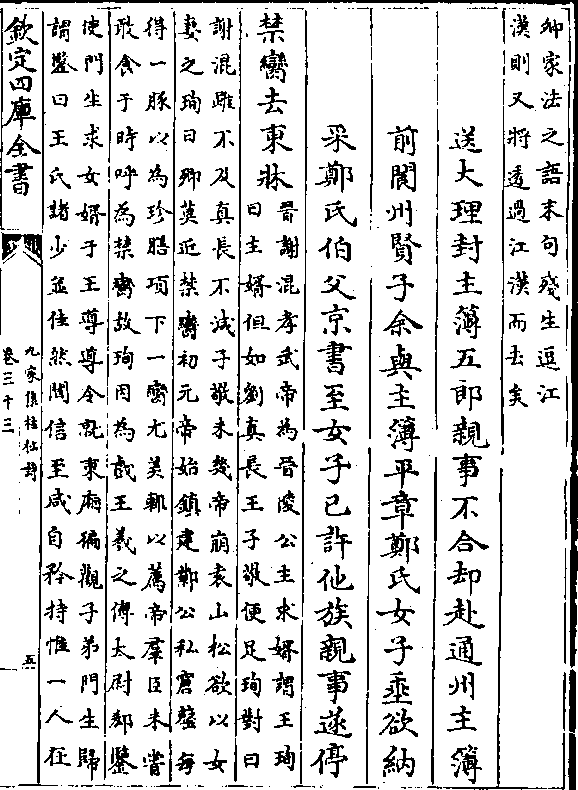 卿家法之語末句殘生逗江
漢則又將透過江漢而去矣
送大理封主簿五郎親事不合却赴通州主簿
前閬州賢子余與主簿平章鄭氏女子垂欲納
采鄭氏伯父京書至女子已許他族親事遂停
禁臠去東牀
晉謝混孝武帝為晉陵公主求婿謂王珣
曰主婿但如劉真長王子敬便足珣對曰
謝混雖不及真長不減子敬未幾帝崩袁山松欲以女
妻之珣曰卿莫近禁臠初元帝始鎮建鄴公私窘罄每
得一豚以為珍膳項下一臠尤美輒以薦帝羣臣未嘗
敢食于時呼為禁臠故珣因為戲王羲之傳太尉郗鑒
使門生求女婿于王導導令就東廂徧觀子弟門生歸
謂鑒曰王氏諸少並佳然聞信至咸自矜持惟一人在
欽定四庫全書
九家集註杜詩
卷三十三
五